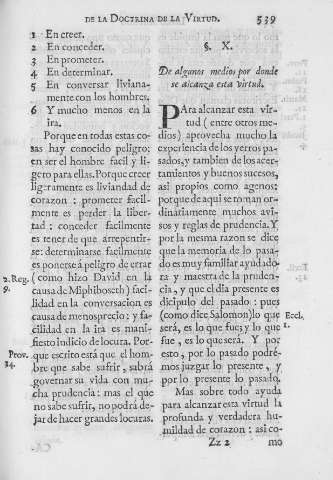 DE LA DOCTRINA DE LA VIRTUD. 539
1 En creer.
2 En conceder.
3 En prometer.
4 En determinar.
5 En conversar liviana-
mente con los hombres.
6 Y mucho menos en la
ira.
Porque en todas estas co-
sas hay conocido peligro;
en ser el hombre facil y li-
gero para ellas. Porque creer
ligeramente es liviandad de
corazon : prometer facil-
mente es perder la liber-
tad : conceder facilmente
es tener de que arrepentir-
se: determinarse facilmente
es ponerse á peligro de errar
2. Reg. ( como hizo David en la
9. causa de Miphiboseth ) faci-
lidad en la conversacion es
causa de menosprecio ; y fa-
cilidad en la ira es mani-
fiesto indicio de locura. Por-
Prov. que escrito está que el hom-
14. bre que sabe sufrir, sabrá
governar su vida con mu-
cha prudencia: mas el que
no sabe sufrir, no podrá de-
jar de hacer grandes locuras.
§. X.
De algunos medios por donde
se alcanza esta virtud.
PAra alcanzar esta vir-
tud ( entre otros me-
dios ) aprovecha mucho la
experiencia de los yerros pa-
sados, y tambien de los acer-
tamientos y buenos sucesos,
asi propios como agenos;
porque de aqui se toman or-
dinariamente muchos avi-
sos y reglas de prudencia. Y
por la mesma razon se dice
que la memoria de lo pasa-
do es muy familiar ayudado-
ra y maestra de la pruden-
cia , y que el dia presente es
dicipulo del pasado : pues
(como dice Salomon) lo que Eccl.
será, es lo que fue; y lo que 1.
fue , es lo que será. Y por
esto , por lo pasado podré-
mos juzgar lo presente , y
por lo presente lo pasado.
Mas sobre todo ayuda
para alcanzar esta virtud la
profunda y verdadera hu-
mildad de corazon : asi co-
Zz 2 mo